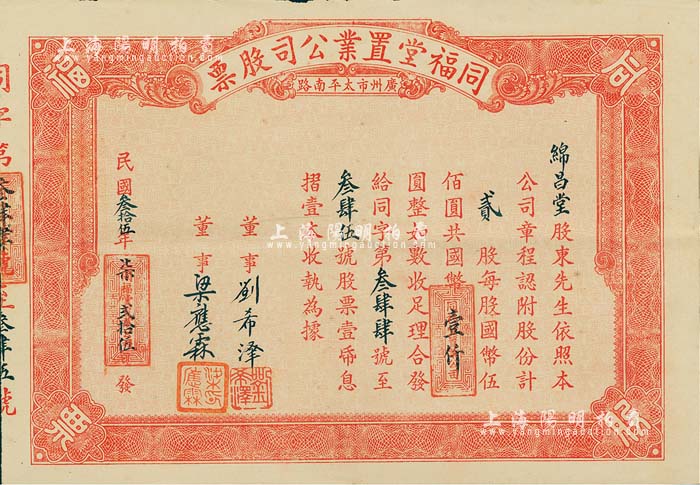 同福堂置業公司股票
廣州市太平南路
綿昌堂股東先生依照本
公司章程認附股份計
貳股每股國幣伍
佰圓共國幣壹仟
圓整是數收足理合發
給同字第叁肆肆號至
叁肆伍號股票壹帋息
摺壹本收執為據
董事劉希澤
董事梁應霖
民國叁拾伍年柒月貳拾伍日發
同字第
號至叁肆伍號
同
福
股
票
上海陽明拍賣
www.yangmingauction.com
上海陽明拍賣
www.yangmingauction.com
上海陽明拍賣
www.yangmingauction.com